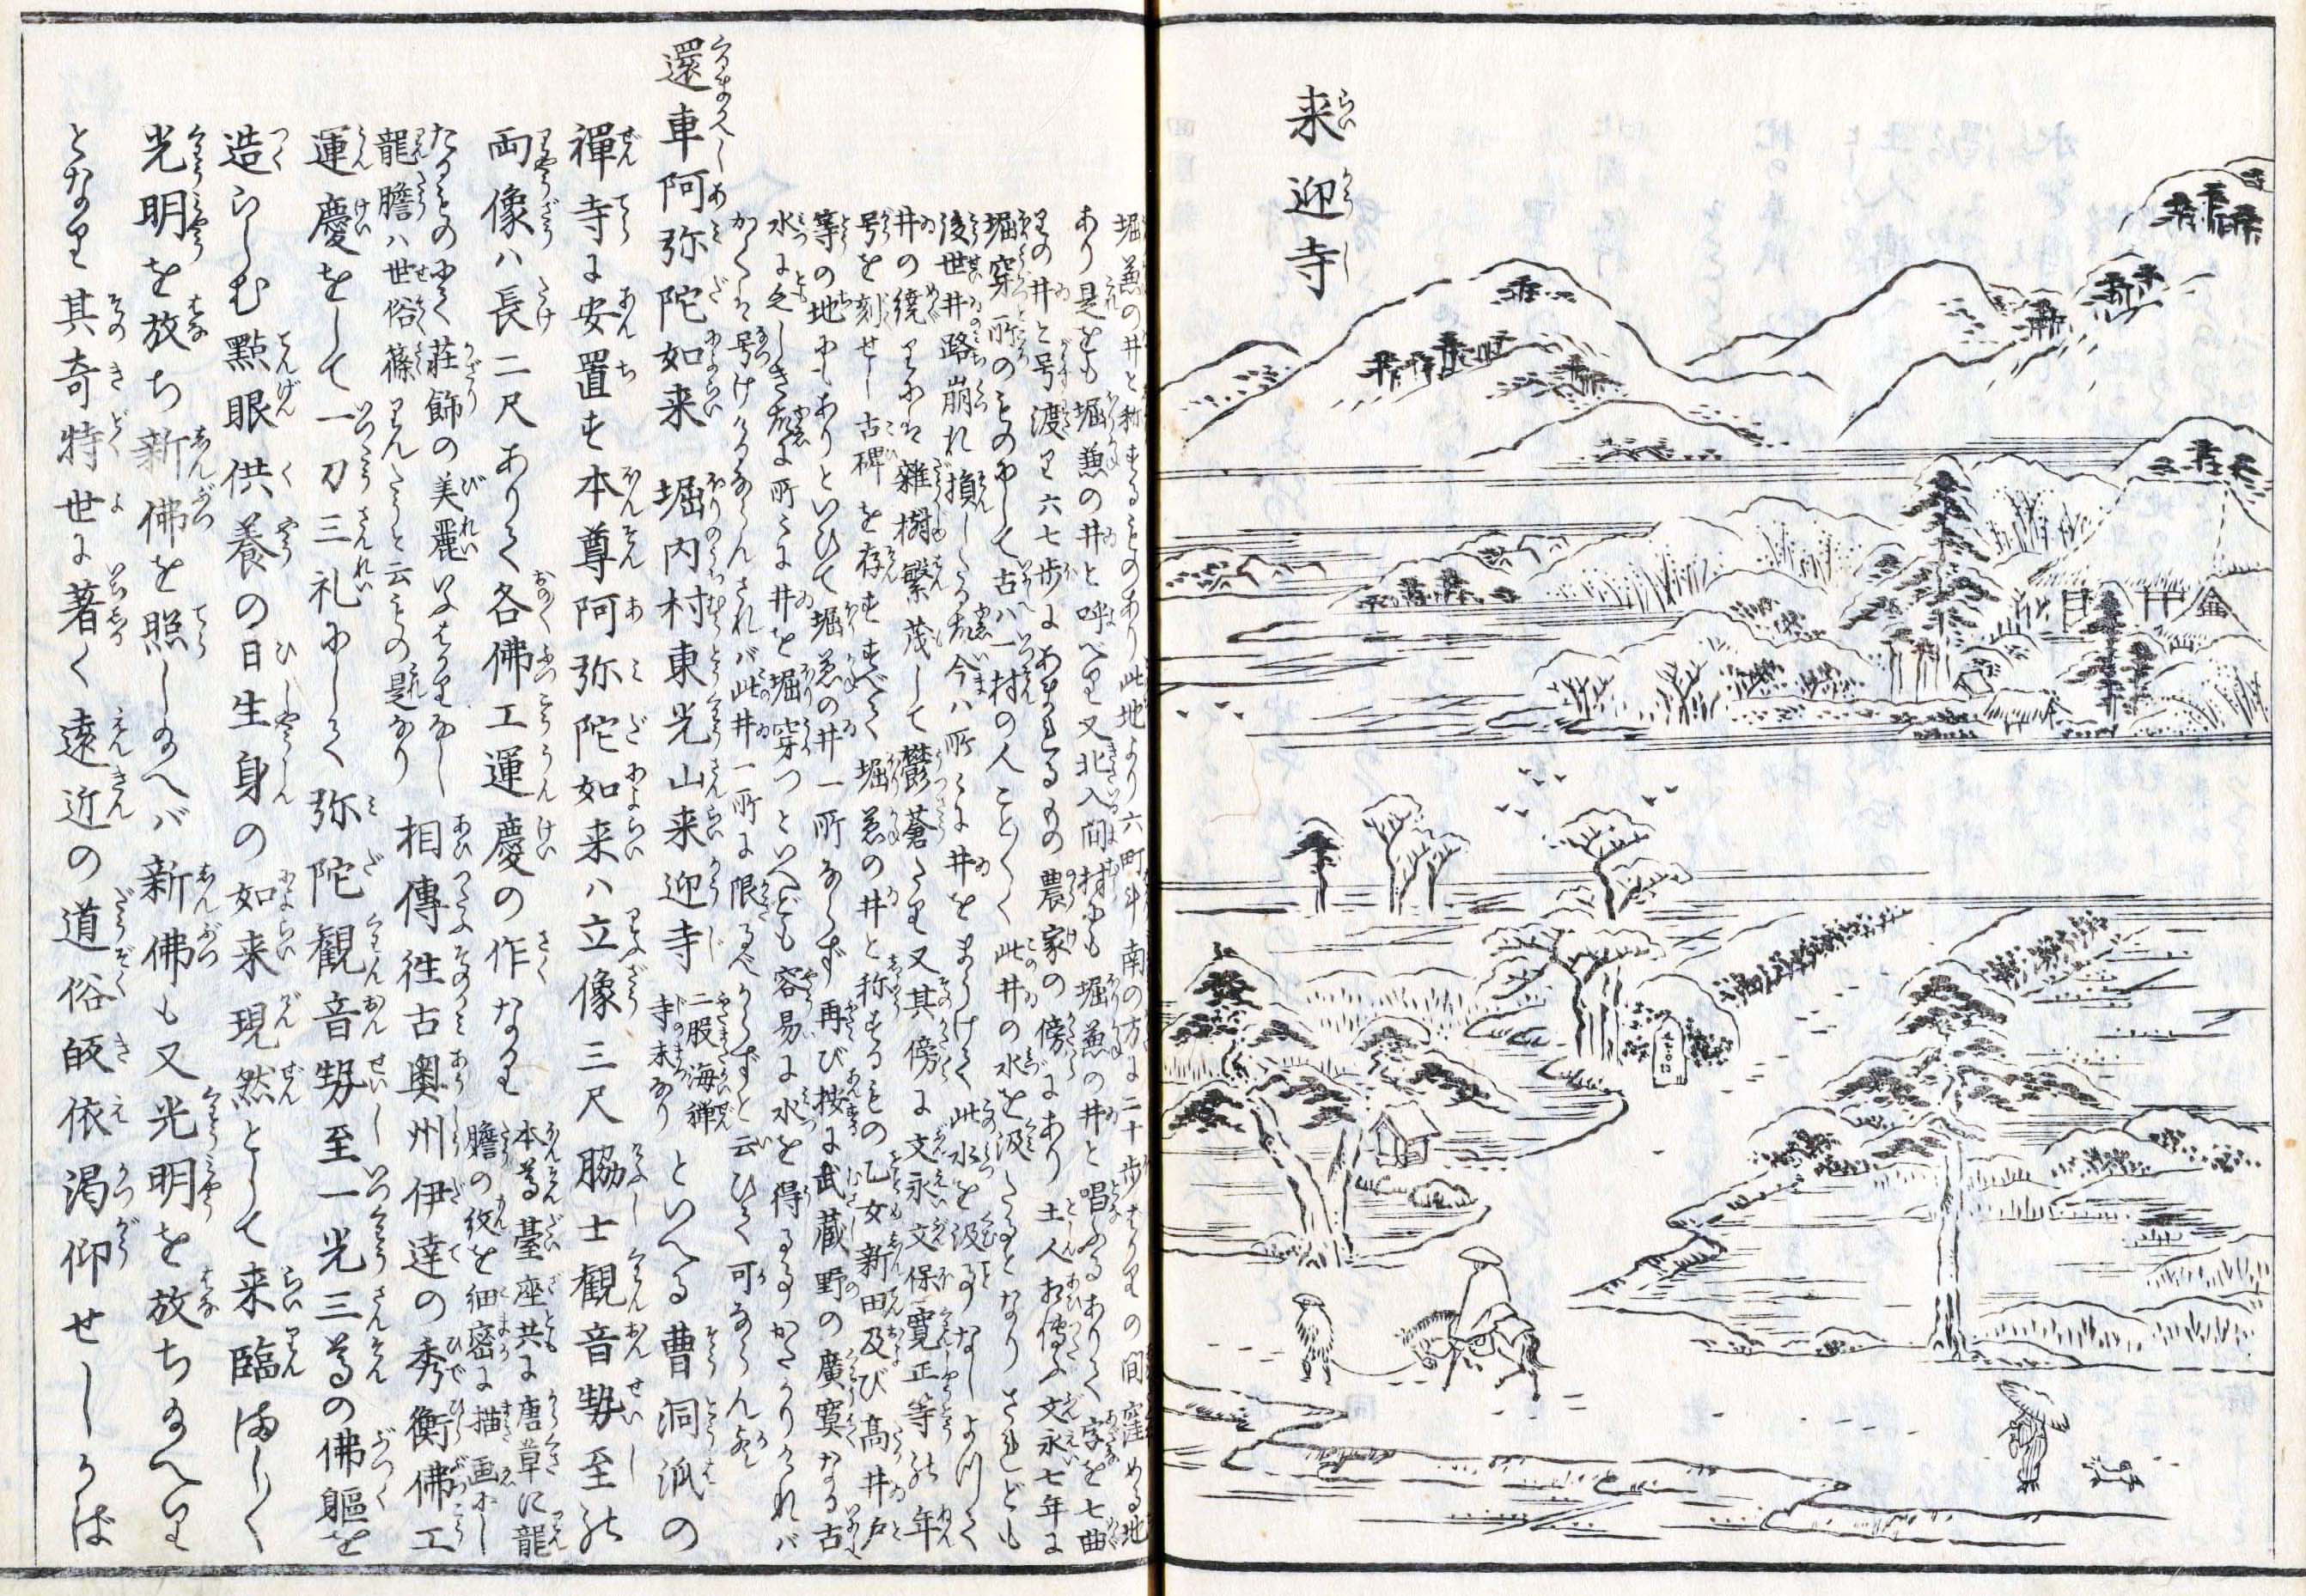 来迎寺
らいかうじ
堀兼の井と称するものあり此地より六町斗南の方に二十歩はかりの間窪める地
あり是をも堀兼の井と呼べり又北入間村にも堀兼の井と唱ふるありて字を七曲
りの井と号渡り六七歩にあまれるもの農家の傍にあり土人相傳ふ文永七年に
堀穿所のものにして古ハ一村の人ことごとく此井の水を汲たるとなりされども
後世井路崩れ損したる故今ハ所々に井をまうけて此水を汲事なしよつて
井の繞りにハ雜樹繁茂して鬱蒼たり又其傍に文永文保寛正等の年
号を刻せし古碑を存すすべて堀兼の井と称するもの乙女新田及び高井戸
等の地にもありといひて堀兼の井一所ならず再び按に武蔵野の廣寞なる古
水に乏しき故に所々に井を堀穿つといへども容易に水を得る事かたかりけれバ
かくハ号けけるならんされバ此井一所に限るべからずと云ひて可ならん歟
還車阿弥陀如来 堀内村東光山来迎寺 二股海禅寺末なり といへる曹洞派の
禪寺に安置す本尊阿弥陀如来ハ立像三尺脇士観音勢至の
両像ハ長二尺ありて各佛工運慶の作なり 本尊臺座共に唐草に龍膽の紋を細密に描画にし
たるものにて荘飾の美麗いふはかりなし龍膽ハ世俗篠りんたうと云もの是なり 相傳往古奥州伊達の秀衡佛工
運慶をして一刀三礼にして弥陀観音勢至一光三尊の佛軀を
造らしむ點眼供養の日生身の如来現然として来臨ましく
光明を放ち新佛を照し給へバ新佛も又光明を放ち給へり
となり其奇特世に著く遠近の道俗皈依渇仰せしかば